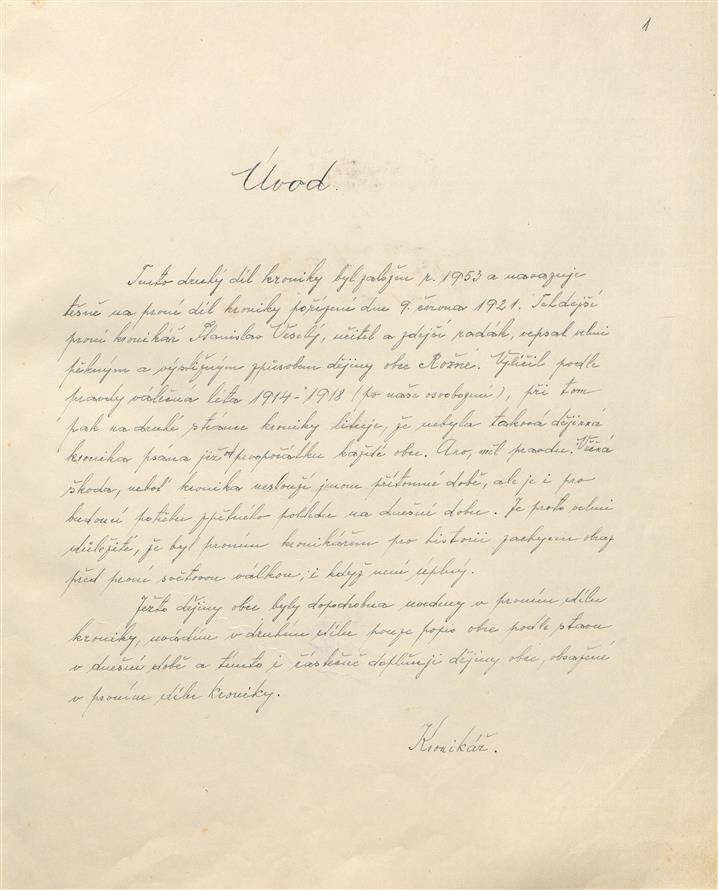 1
Úvod.
Tento druhý díl kroniky byl založen r. 1953 a navazuje
těsně na první díl kroniky pořízený dne 9. června 1921. Tehdejší
první kronikář Stanislav Veselý, učitel a zdejší rodák, sepsal velmi
pěkným a výstižným způsobem dějiny obce Rožné. Vylíčil podle
pravdy válečná léta 1914-1918 (po naše osvobození), při tom
pak na druhé stránce kroniky lituje, že nebyla taková dějinná
kronika psána již od prvopočátku každé obce. Ano, měl pravdu. Věčná
škoda, neboť kronika neslouží jenom přítomné době, ale je i pro
budoucí potřebu zpětného pohledu na dnešní dobu. Je proto velmi
důležité, že byl prvním kronikářem pro historii zachycen obraz
před první světovou válkou, i když není úplný.
Ježto dějiny obce byly dopodrobna uvedeny v prvním dílu
kroniky, uvádím v druhém dílu pouze popis obce podle stavu
v dnešní době a tímto i částečně doplňuji dějiny obce, obsažené
v prvním dílu kroniky.
Kronikář.